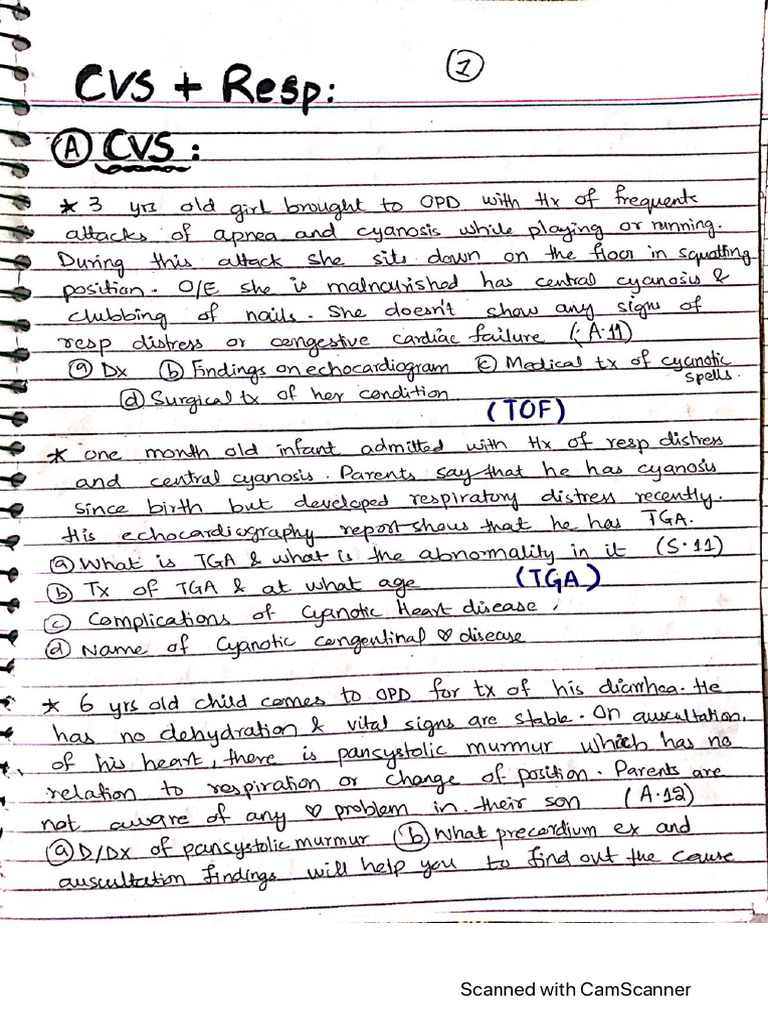 1
CVS + Resp:
A CVS:
* 3 yrs old girl brought to OPD with Hx of frequent
attacks of apnea and cyanosis while playing or running.
During this attack she sits down on the floor in squatting
position. O/E she is malnourished has central cyanosis &
clubbing of nails. She doesn't show any signs of
resp distress or congestive cardiac failure (A.11)
a Dx b Findings on echocardiogram c Medical tx of cyanotic
spells.
d Surgical tx of her condition
(TOF)
* one month old infant admitted with Hx of resp distress
and central cyanosis. Parents say that he has cyanosis
since birth but developed respiratory distress recently.
His echocardiography report shows that he has TGA.
a What is TGA & what is the abnormality in it (S.11)
b Tx of TGA & at what age (TGA)
c Complications of Cyanotic Heart disease,
d Name of Cyanotic congentinal ♡ disease
* 6 yrs old child comes to OPD for tx of his diarrhea. He
has no dehydration & vital signs are stable. On auscultation,
of his heart, there is pansystolic murmur which has no
relation to respiration or change of position. Parents are
not aware of any ♡ problem in their son (A.12)
a D/Dx of pansystolic murmur b What precordium ex and
auscultation findings will help you to find out the cause
Scanned with CamScanner